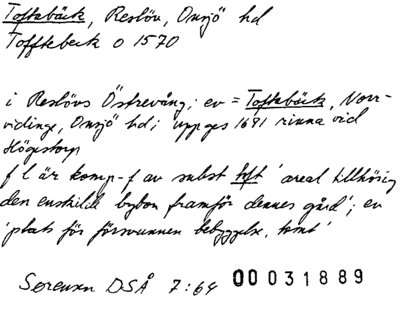 Toftabäck, Reslöv, Onsjö hd
Tofftebeck o 1570
i Reslövs Östrevång; ev = Toftabäck, Norr-
vidinge, Onsjö hd; uppges 1681 rinna vid
Högestorp
f l är komp-f av subst toft 'areal tillhörig
den enskilde bybon framför dennes gård'; ev
'plats för försvunnen bebyggelse, tomt'
Sørensen DSÅ 7:64 00 031889